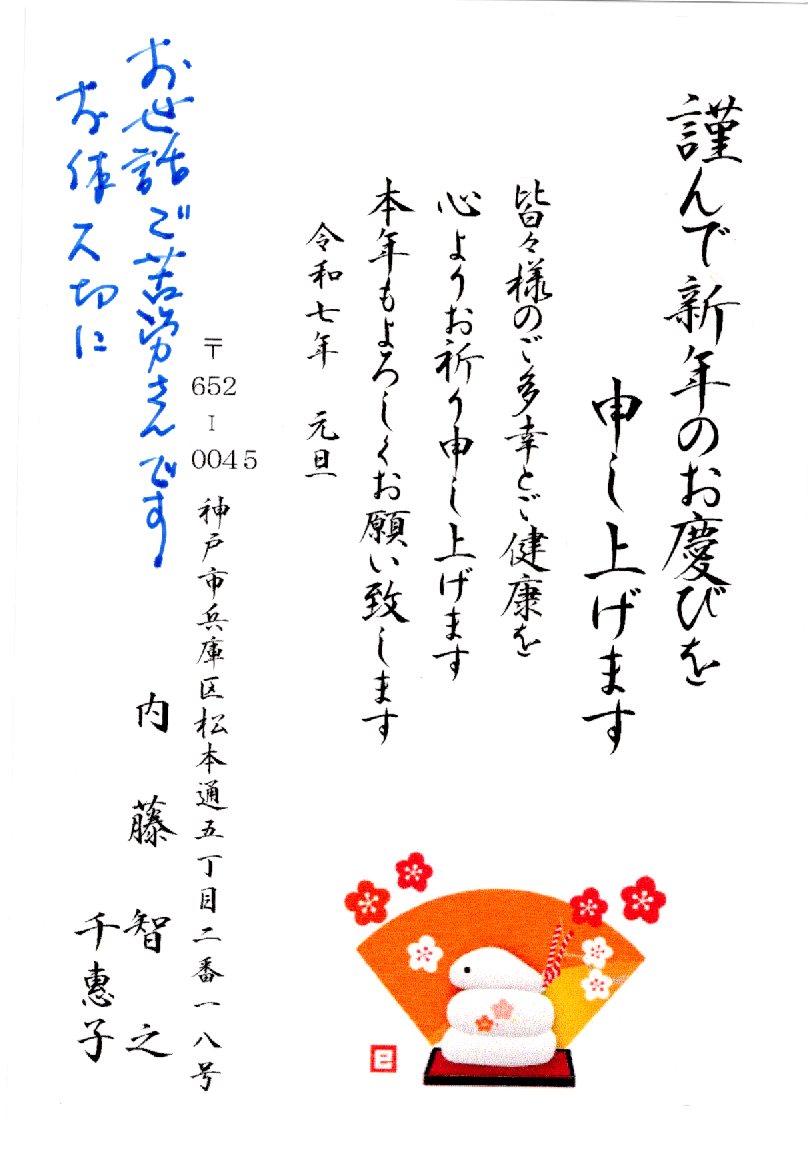 謹んで新年のお慶びを
申し上げます
皆々様のご多幸とご健康を
心よりお祈り申し上げます
本年もよろしくお願い致します
令和七年 元旦
〒652-0045 神戸市兵庫区松本通五丁目二番一八号
内藤智之
千惠子
お世話ご苦労さんです
お体大切に
巳